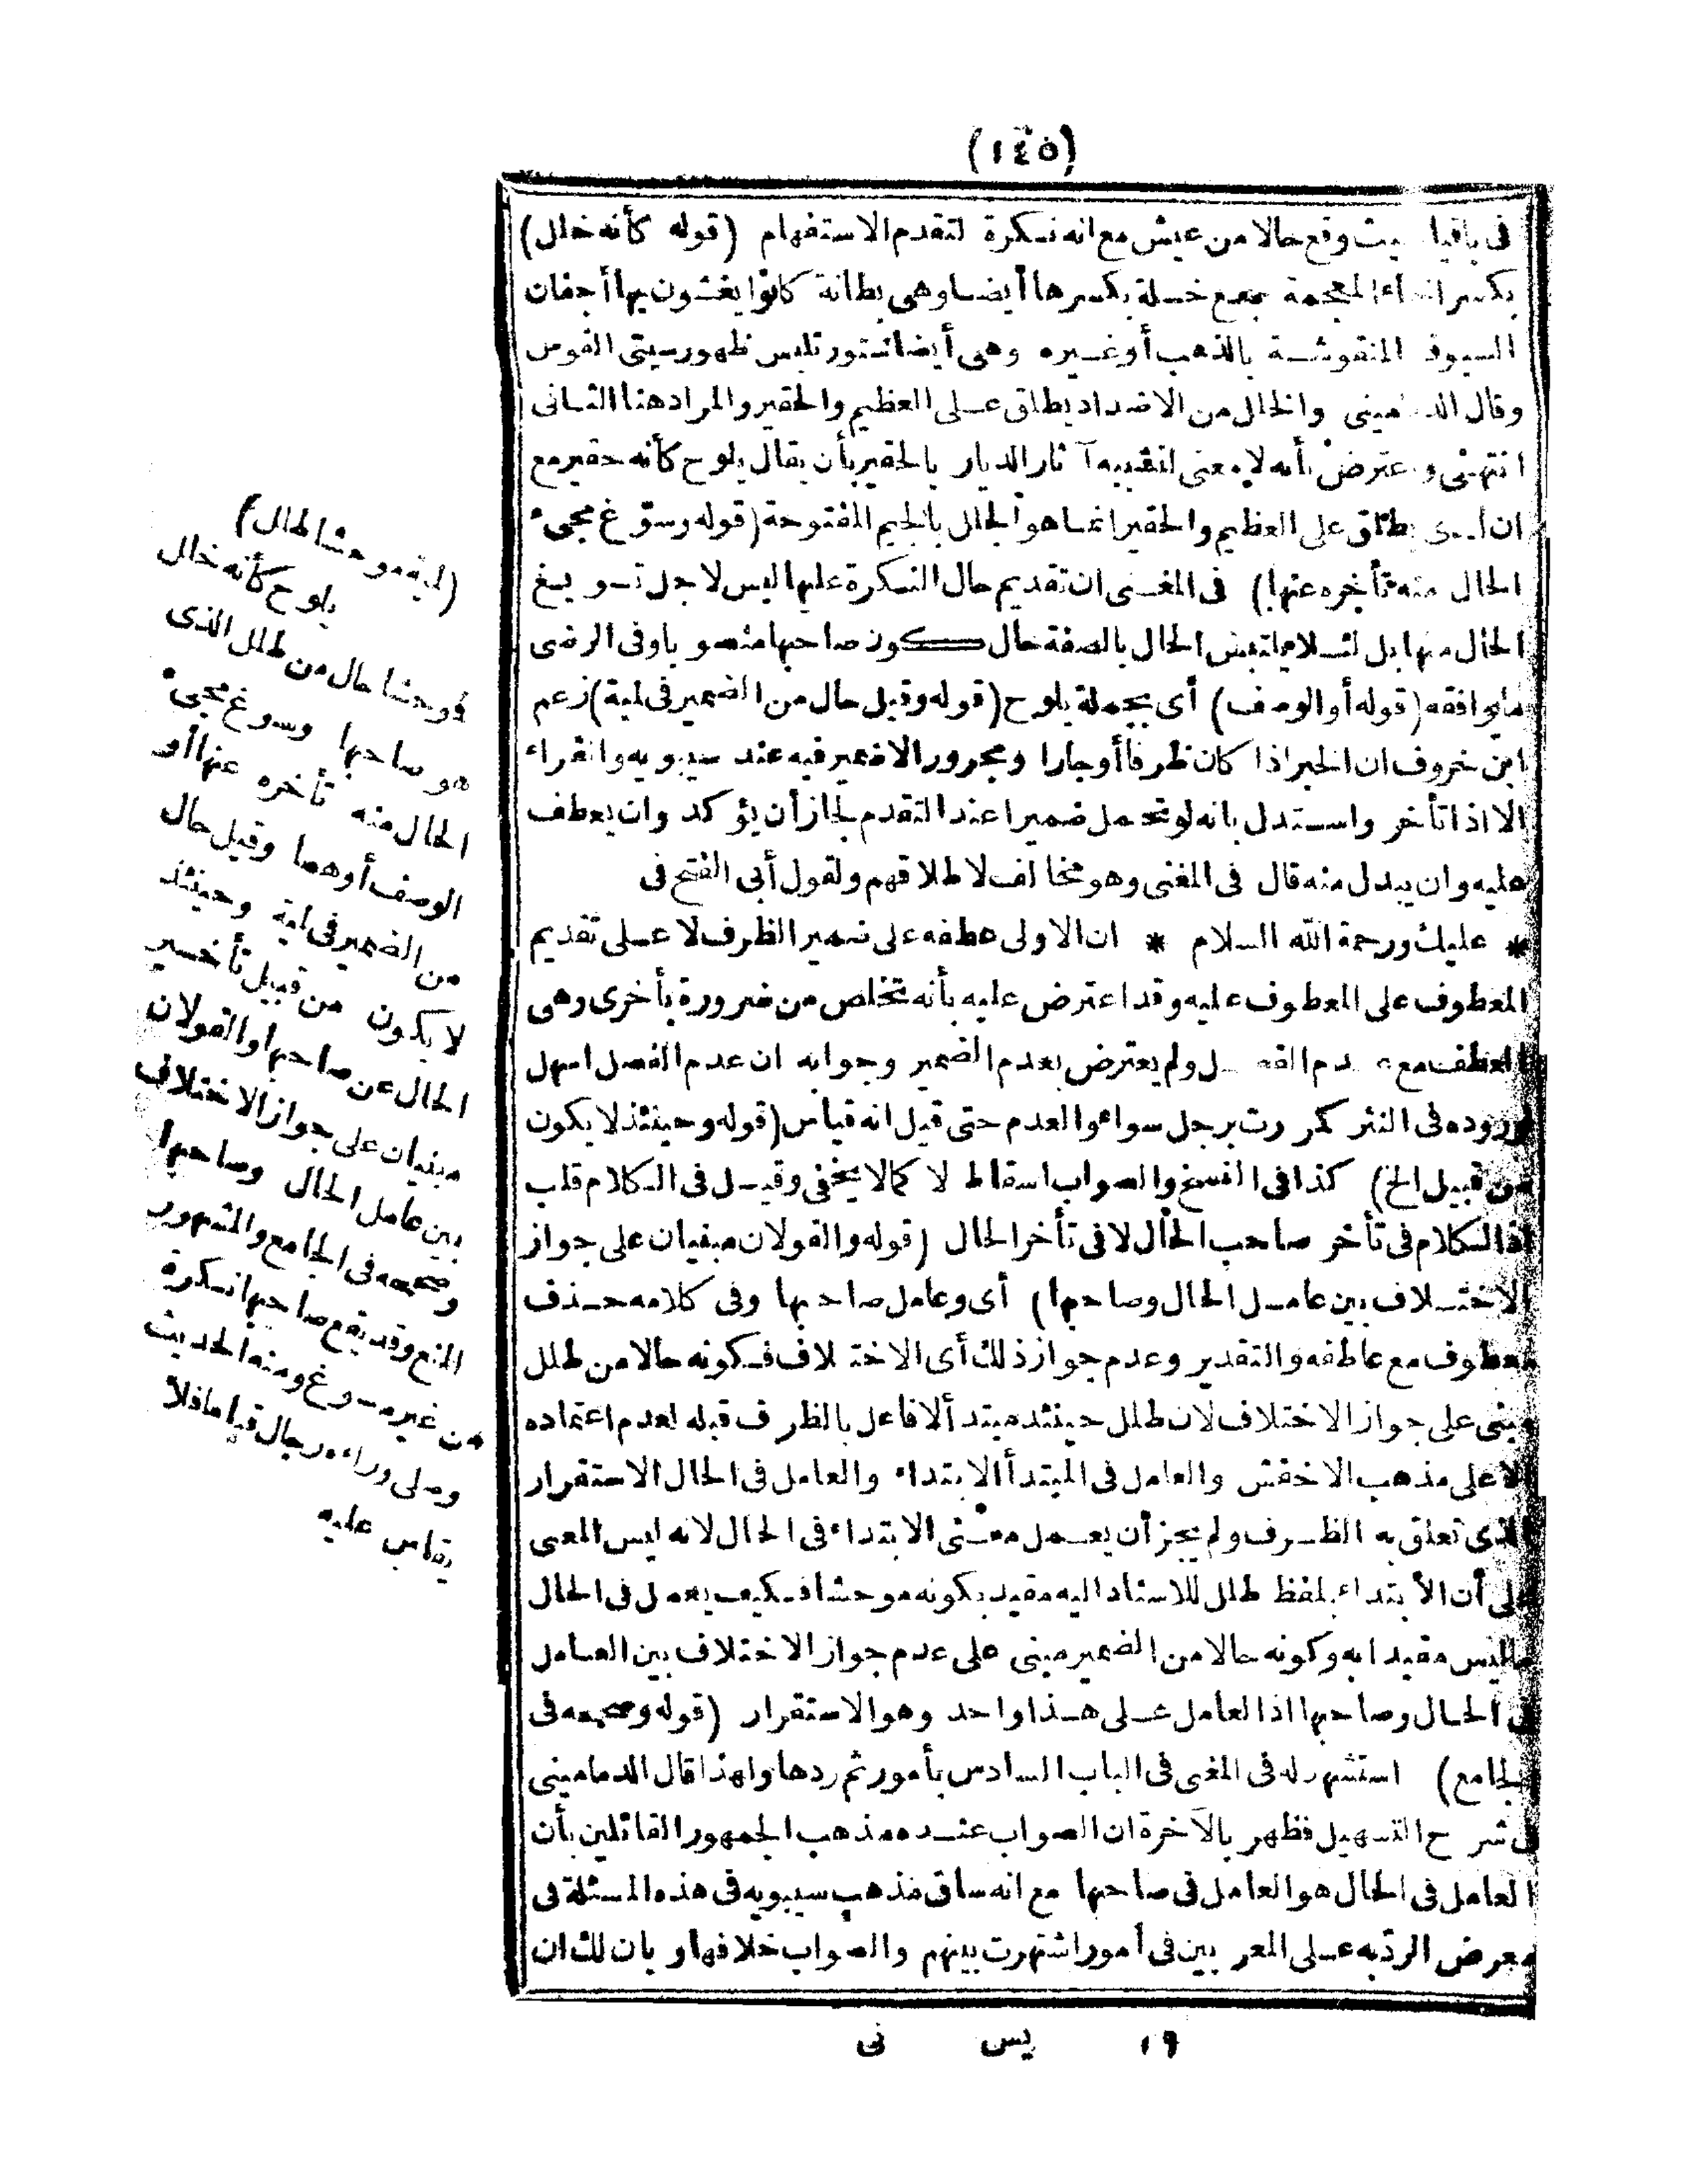 (١٤٥)
فى باقيا وقع حالا من عيش مع انه نكرة لتقدم الاستفهام (قوله كأنه خلل)
بكسر المعجمة جمع خلة بكسرها أيضا وهى بطانة كانوا يغشون بها أجفان
السيوف المنقوشة بالذهب أو غيره وهى أيضا ستور تلبس ظهور سيتى القوس
وقال والخلل من الاضداد يطلق على العظيم والحقير والمراد هنا الثانى
انتهى بأنه لا معنى لتشبيه آثار الديار بالحقير بأن يقال يلوح كأنه حقير مع
ان على العظيم والحقير انما هو الجلل بالجيم المفتوحة (قوله وسوّغ مجىء
الحال منه تأخره عنها) فى المغنى ان تقديم حال النكرة عليها ليس لاجل تسويغ
الحال منها بل لئلا يلتبس الحال بالصفة حال كون صاحبها منصوبا وفى الرضى
ما يوافقه (قوله أو الوصف) أى بجملة يلوح (قوله وقيل حال من الضمير فى لمية) زعم
ابن خروف ان الخبر اذا كان ظرفا أو جارا ومجرورا لا ضمير فيه عند سيبويه والفراء
الا اذا تأخر واستدل بانه لو تحمل ضميرا عند التقدم لجاز أن يؤكد وان يعطف
عليه وان يبدل منه قال فى المغنى وهو مخالف لاطلاقهم ولقول أبى الفتح فى
* عليك ورحمة الله السلام * ان الاولى عطفه على ضمير الظرف لا على تقديم
المعطوف على المعطوف عليه وقد اعترض عليه بأنه تخلص من ضرورة بأخرى وهى
العطف مع عدم الفصل ولم يعترض بعدم الضمير وجوابه ان عدم الفصل اسهل
لوروده فى النثر كمررت برجل سواء والعدم حتى قيل انه قياس (قوله وحينئذ لا يكون
من قبيل الخ) كذا فى النسخ والصواب اسقاط لا كما لا يخفى وقيل فى الكلام قلب
اذ الكلام فى تأخر صاحب الحال لا فى تأخر الحال (قوله والقولان مبنيان على جواز
الاختلاف بين عامل الحال وصاحبها) أى وعامل صاحبها وفى كلامه حذف
معطوف مع عاطفه والتقدير وعدم جواز ذلك أى الاختلاف فكونه حالا من طلل
مبنى على جواز الاختلاف لان طلل حينئذ مبتدأ لا فاعل بالظرف قبله لعدم اعتماده
الا على مذهب الاخفش والعامل فى المبتدأ الابتداء والعامل فى الحال الاستقرار
الذى تعلق به الظرف ولم يجز أن يعمل معنى الابتداء فى الحال لانه ليس المعنى
على أن الابتداء بلفظ طلل للاسناد اليه مقيد بكونه موحشا فكيف يعمل فى الحال
ما ليس مقيدا به وكونه حالا من الضمير مبنى على عدم جواز الاختلاف بين العامل
فى الحال وصاحبها اذ العامل على هذا واحد وهو الاستقرار (قوله وصححه فى
الجامع) استشهر له فى المغنى فى الباب السادس بأمور ثم ردها ولهذا قال الدمامينى
فى شرح التسهيل فظهر بالآخرة ان الصواب عنده مذهب الجمهور القائلين بأن
العامل فى الحال هو العامل فى صاحبها مع انه ساق مذهب سيبويه فى هذه المسئلة فى
معرض الرد به على المعربين فى أمور اشتهرت بينهم والصواب خلافها وبان لك ان
(لمية موحشا طلل)
يلوح كأنه خلل
فموحشا حال من طلل الذى
هو صاحبها وسوغ مجىء
الحال منه تأخره عنها أو
الوصف أو هما وقيل حال
من الضمير فى لمية وحينئذ
لا يكون من قبيل تأخير
الحال عن صاحبها والقولان
مبنيان على جواز الاختلاف
بين عامل الحال وصاحبها
وصححه فى الجامع والمشهور
المنع وقد يقع صاحبها نكرة
من غير مسوغ ومنه الحديث
وصلى وراءه رجال قياما فلا
يقاس عليه
١٩ يس نى